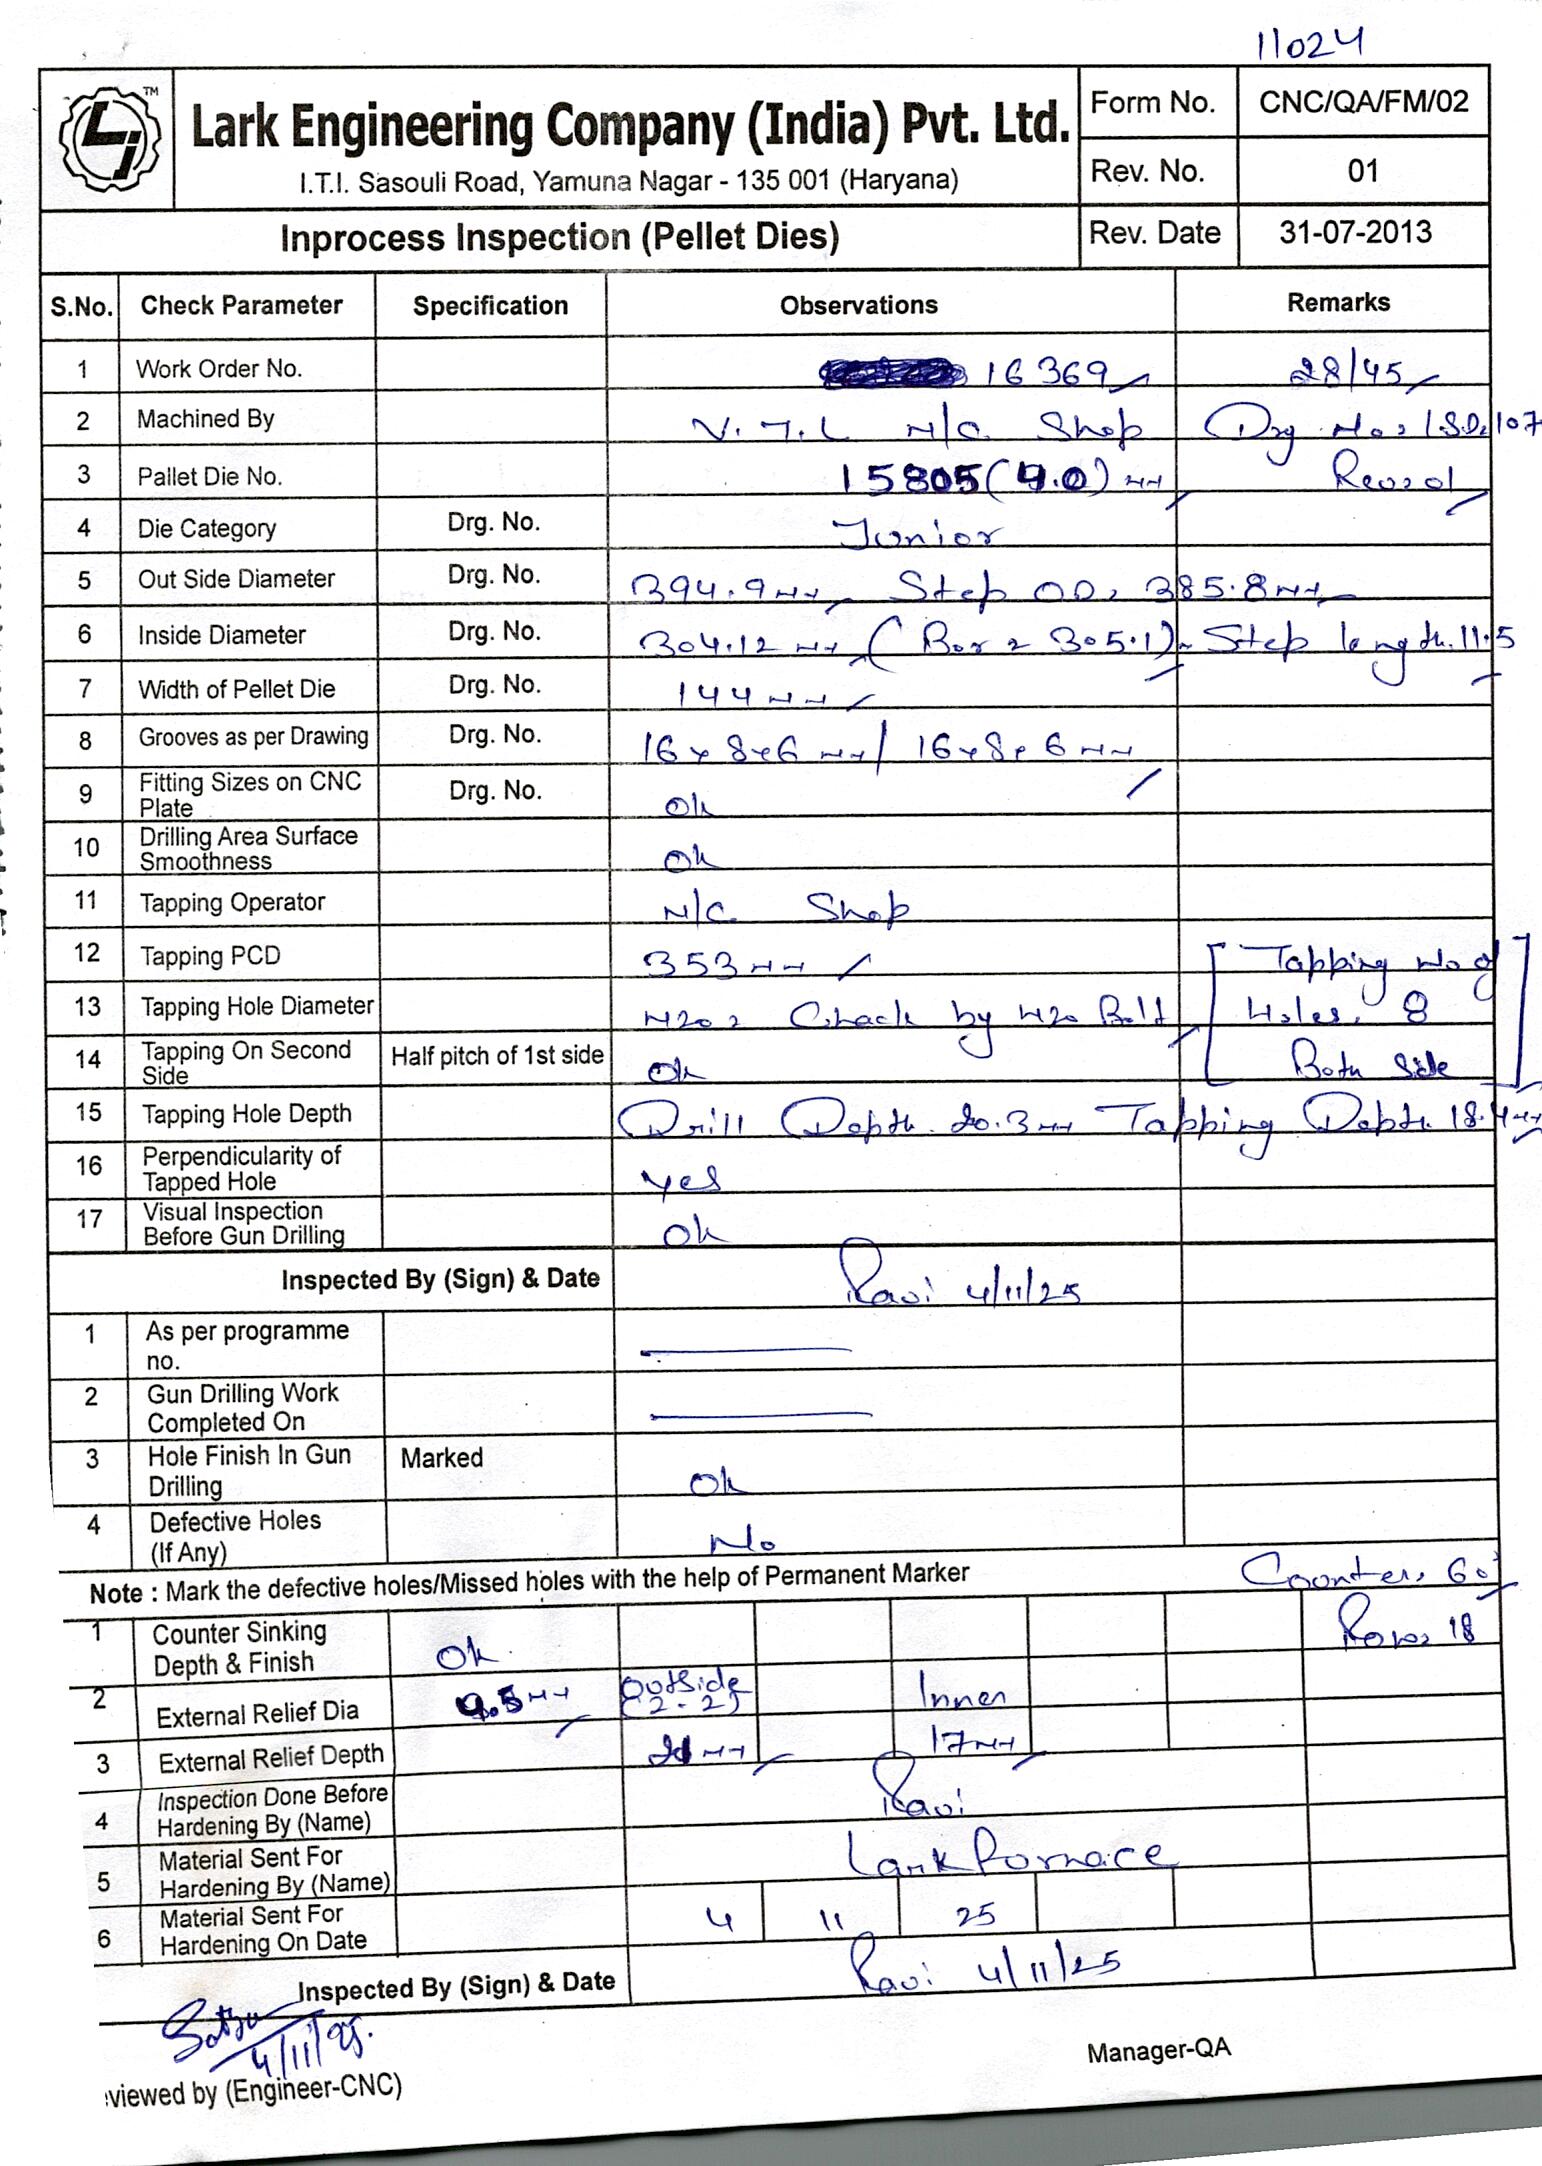 11024
TM
Lark Engineering Company (India) Pvt. Ltd.
I.T.I. Sasouli Road, Yamuna Nagar - 135 001 (Haryana)
Form No. CNC/QA/FM/02
Rev. No. 01
Inprocess Inspection (Pellet Dies)
Rev. Date 31-07-2013
S.No. Check Parameter Specification Observations Remarks
1 Work Order No. 16369 28/45
2 Machined By V.T.L M/C Shop Drg No. LSD 107
3 Pallet Die No. 15805 (4.0) mm Rev 01
4 Die Category Drg. No. Junior
5 Out Side Diameter Drg. No. 394.9mm Step OD, 385.8mm
6 Inside Diameter Drg. No. 304.12 mm (Bor 305.1) Step length 11.5
7 Width of Pellet Die Drg. No. 144mm
8 Grooves as per Drawing Drg. No. 16x8x6 mm / 16x8x6 mm
9 Fitting Sizes on CNC Plate Drg. No. Ok
10 Drilling Area Surface Smoothness Ok
11 Tapping Operator M/C Shop
12 Tapping PCD 353mm [Tapping No of
13 Tapping Hole Diameter M20, Check by M20 Bolt Holes, 8
14 Tapping On Second Side Half pitch of 1st side Ok Both Side]
15 Tapping Hole Depth Drill Depth 20.3mm Tapping Depth 18.4mm
16 Perpendicularity of Tapped Hole yes
17 Visual Inspection Before Gun Drilling Ok
Inspected By (Sign) & Date Ravi 4/11/25
1 As per programme no.
2 Gun Drilling Work Completed On
3 Hole Finish In Gun Drilling Marked Ok
4 Defective Holes (If Any) No
Note : Mark the defective holes/Missed holes with the help of Permanent Marker Counter, 60°
1 Counter Sinking Depth & Finish Ok Row, 18
2 External Relief Dia 4.5mm Outside (2-2) Inner
3 External Relief Depth 21mm 17mm
4 Inspection Done Before Hardening By (Name) Ravi
5 Material Sent For Hardening By (Name) Lark Fornace
6 Material Sent For Hardening On Date 4 11 25
Inspected By (Sign) & Date Ravi 4/11/25
4/11/25.
viewed by (Engineer-CNC)
Manager-QA